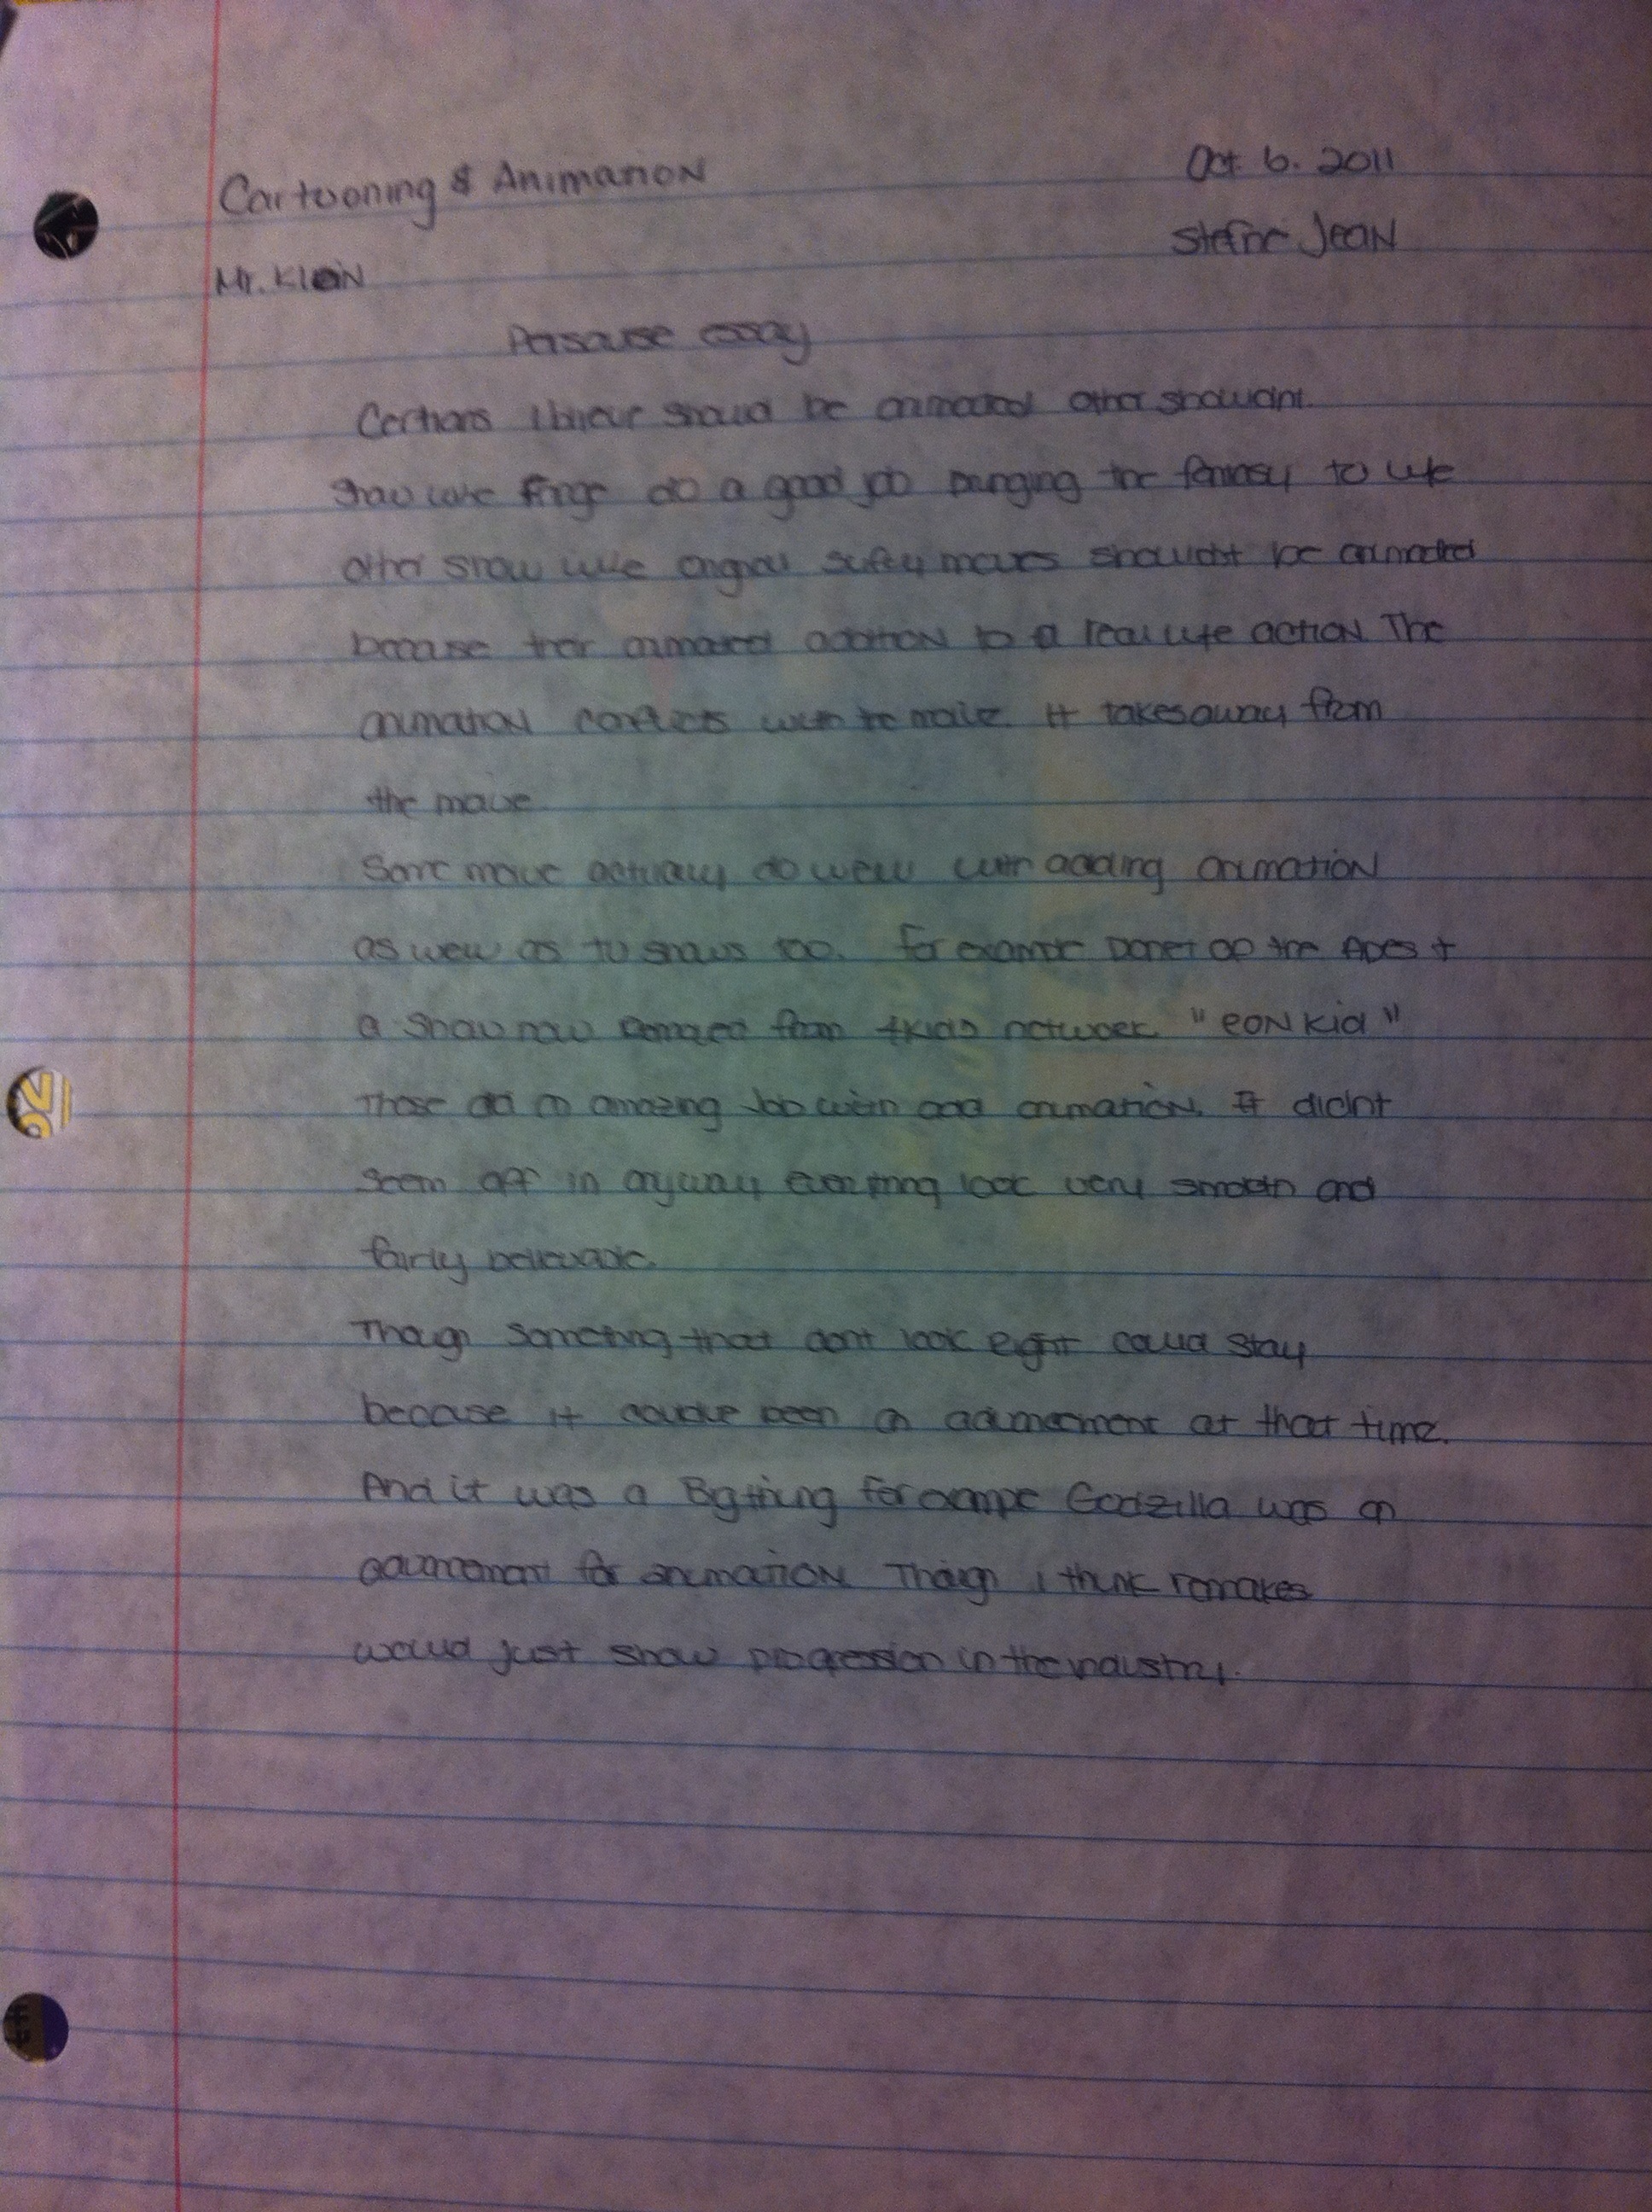 Cartooning & Animation
Oct. 6. 2011
Stefnc Jean
Mr. Klein
Persause essay
should be animated other showdnt.
Show like fringe do a good job bringing the fantasy to life
other show like orginal scifi movies showldnt be animated
because their animated addition to a real life action The
animation conflicts with te movie. It takes away from
the movie
Some movie actually do well with adding animation
as well as tv shows too. for example Planet of the Apes +
a show now from 4kids network "EON Kid"
Those did an amazing Job with add animation. It didnt
seem off in anyway everything look very smooth and
fairly believable.
Though something that dont look right could stay
because it been an advancement at that time.
And it was a Big thing for example Godzilla was an
advancement for animation Though I think remakes
would just show progression in the industry.